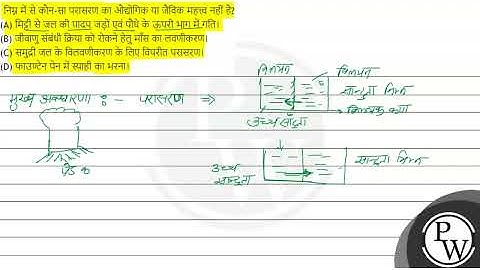 निम्न में से कौन-सा परासरण का औद्योगिक या जैविक महत्त्व नहीं है?
(A) मिट्टी से जल की पादप जड़ों एवं पौधे के ऊपरी भाग में गति।
(B) जीवाणु संबंधी क्रिया को रोकने हेतु माँस का लवणीकरण।
(C) समुद्री जल के विलवणीकरण के लिए विपरीत परासरण।
(D) फाउण्टेन पेन में स्याही का भरना।
मुख्य अवधारणा :- परासरण ⇒
विलयन
विलयन
सान्द्रता निम्न
विलायक कण
उच्च सांद्रता
उच्च
सान्द्रता
सान्द्रता निम्न
PW